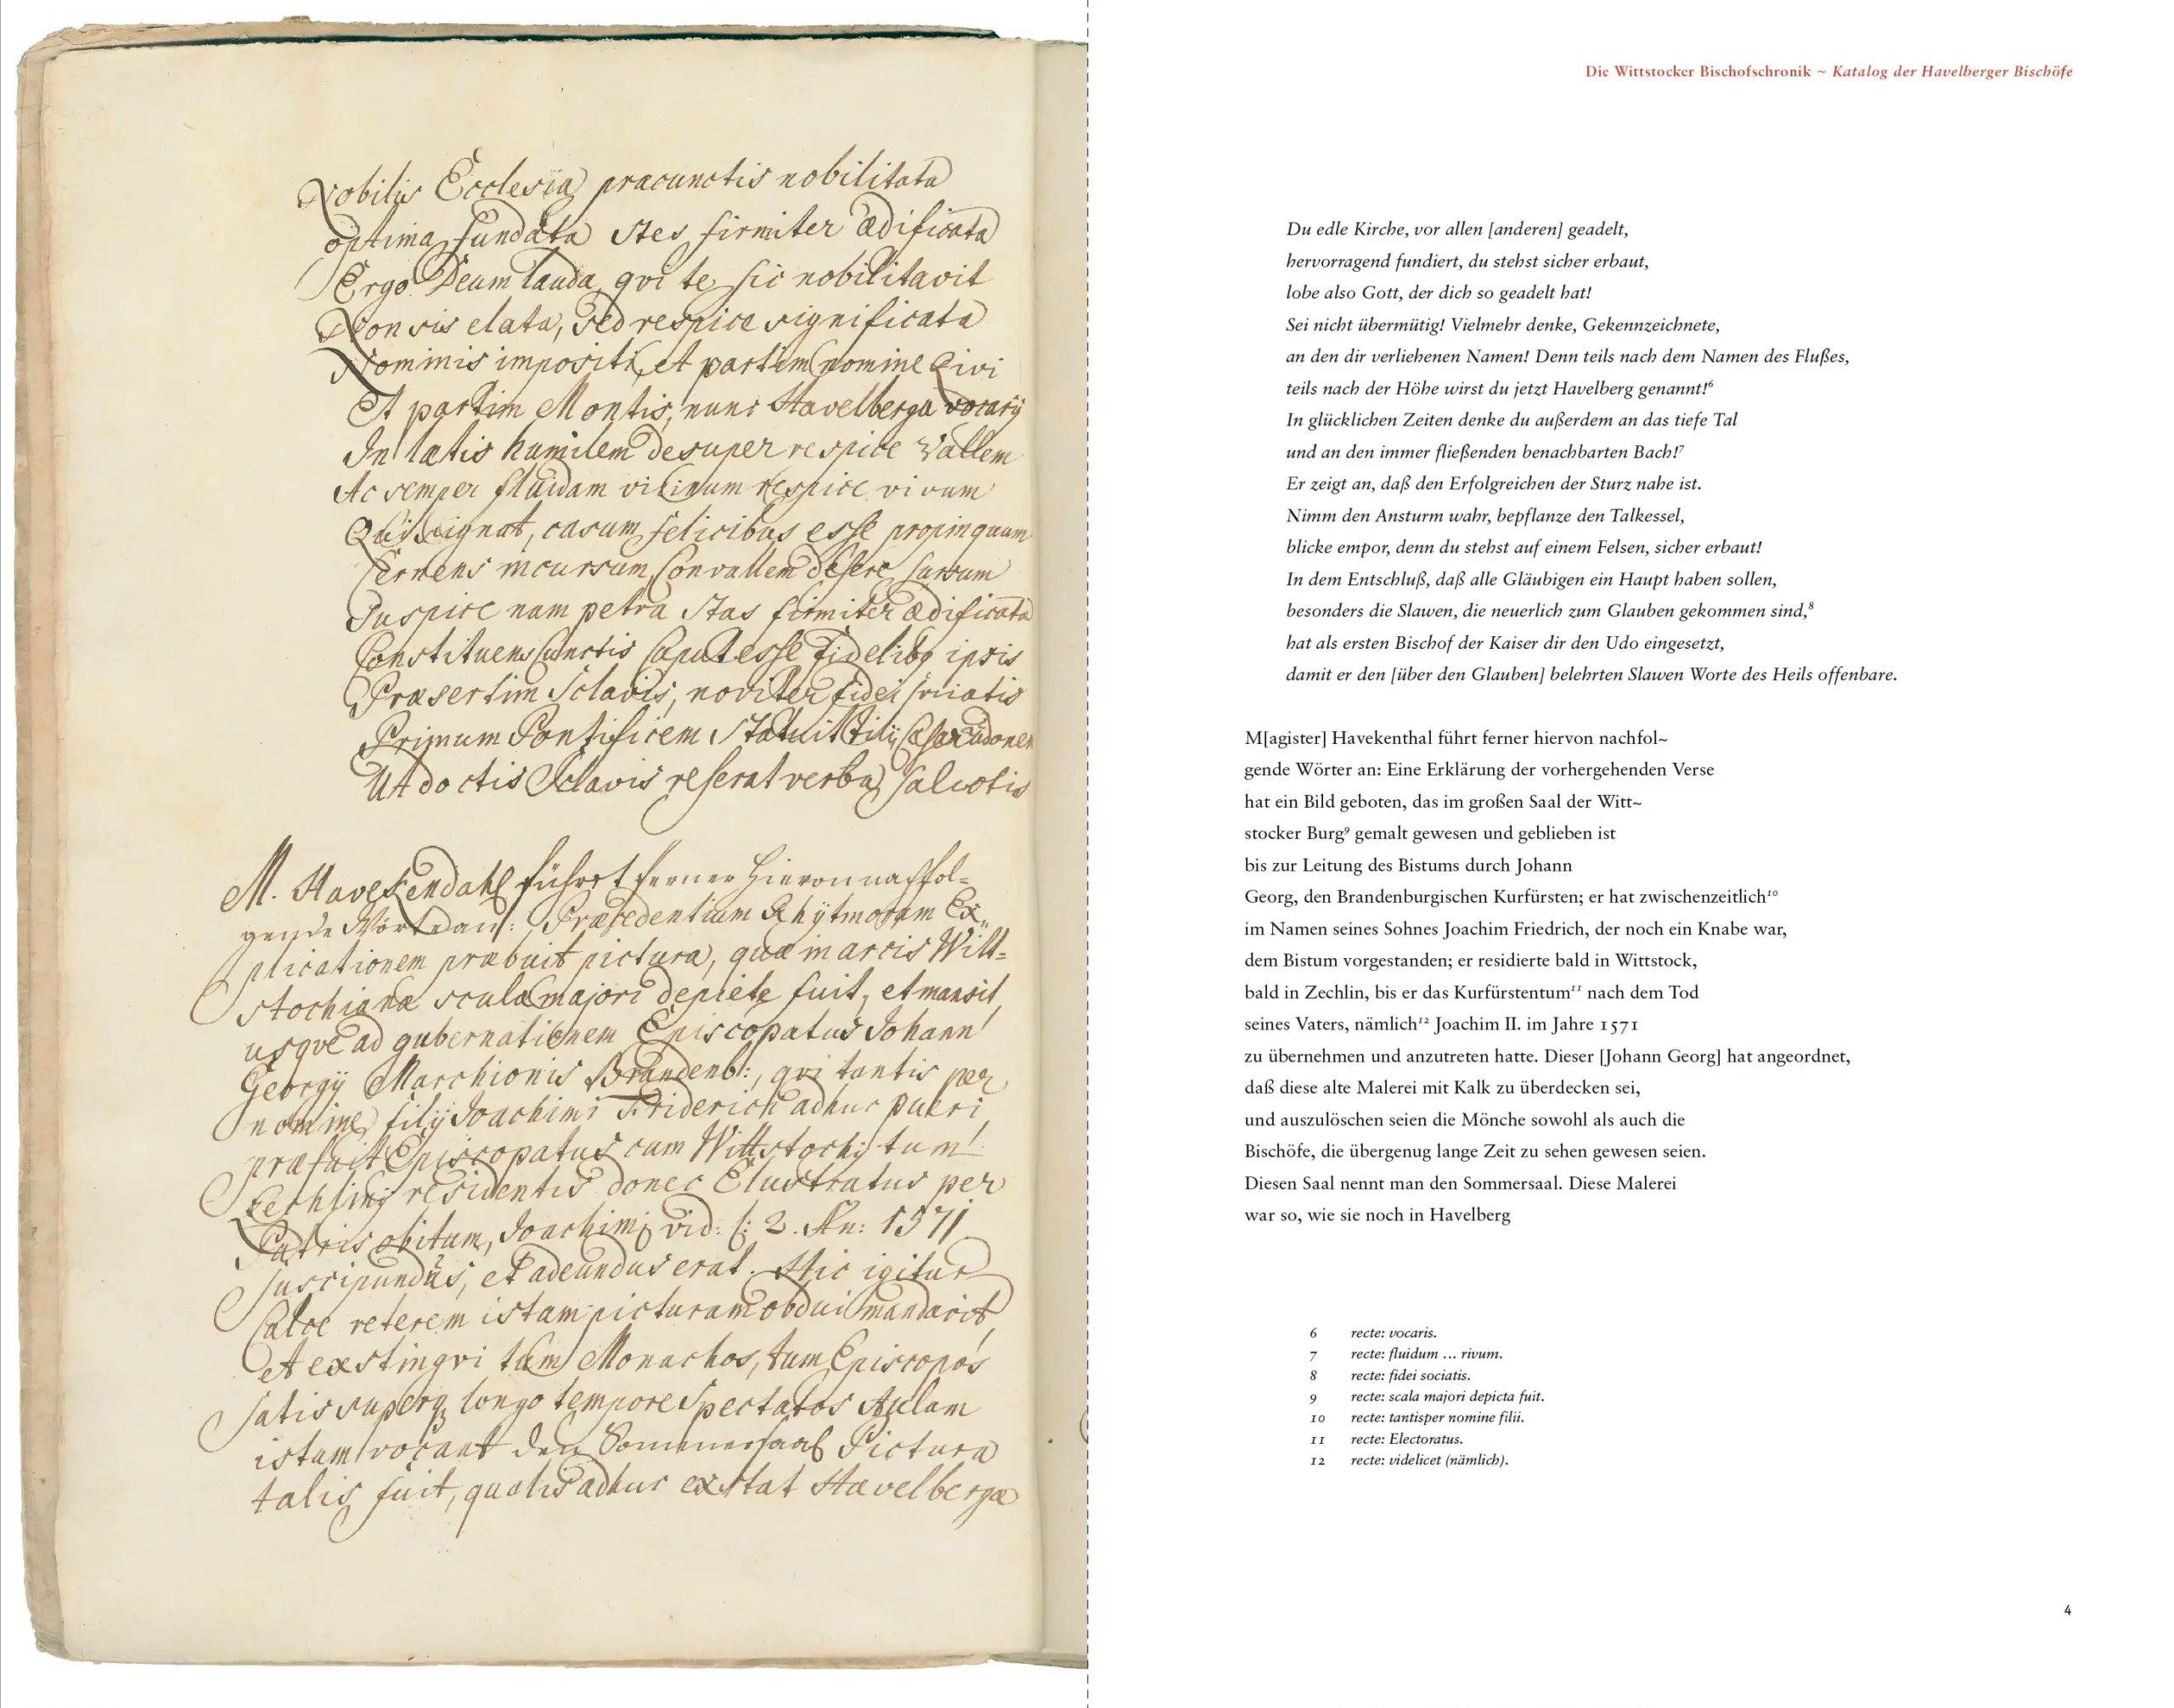 Nobilis Ecclesia præcunctis nobilitata
optima fundata stes firmiter ædificata
Ergo Deum lauda, qvi te sic nobilitavit
Non sis elata, sed respice significata
Nominis impositi, et partim nomine Rivi
Et partim Montis, nunc Havelberga vocarÿ
In lætis humilem desuper respice Vallem
Ac semper fluidam vicinum respice vivum
Qui signat, casum felicibus esse propinquum
Cernens incursum, Convallem desere sursum
Suspice nam petra stas firmiter ædificata
Constituens Cunctis Caput esse fidelibq ipsis
Præsertim Sclavis, noviter fidei
Primum Pontificem Statuit Cæsar udonem
Ut doctis Sclavis reserat verba salutis
M. Havekendahl führet ferner hiervon nachfol=
gende Wörter an: Præcedentium Rhÿtmorum Ex„
plicationem præbuit pictura, quæ in arcis Witt=
stochianæ scula majori depicte fuit, et mansit
usqve ad gubernationem Episcopatus Johann
Georgÿ Marchionis Brandenb:, qvi tantis per
nomine filÿ Joachimi Friderich adhuc pueri
præfuit Episcopatus cum Wittstochÿ tum
Zechlinÿ residentis donec Elustratus per
Patris obitum, Joachimj vid: 2. An: 1571
suscipundus, et adeundus erat. Hic igitur
Calce veterem istam picturam obdui mandavit
et exstingvi tum Monachos, tum Episcopos
satis superq longo tempore Spectatos Aulam
istam vocant den Sommersaal Pictura
talis fuit, qualis adhuc exstat Havelbergæ
Die Wittstocker Bischofschronik ~ Katalog der Havelberger Bischöfe
Du edle Kirche, vor allen [anderen] geadelt,
hervorragend fundiert, du stehst sicher erbaut,
lobe also Gott, der dich so geadelt hat!
Sei nicht übermütig! Vielmehr denke, Gekennzeichnete,
an den dir verliehenen Namen! Denn teils nach dem Namen des Flußes,
teils nach der Höhe wirst du jetzt Havelberg genannt!⁶
In glücklichen Zeiten denke du außerdem an das tiefe Tal
und an den immer fließenden benachbarten Bach!⁷
Er zeigt an, daß den Erfolgreichen der Sturz nahe ist.
Nimm den Ansturm wahr, bepflanze den Talkessel,
blicke empor, denn du stehst auf einem Felsen, sicher erbaut!
In dem Entschluß, daß alle Gläubigen ein Haupt haben sollen,
besonders die Slawen, die neuerlich zum Glauben gekommen sind,⁸
hat als ersten Bischof der Kaiser dir den Udo eingesetzt,
damit er den [über den Glauben] belehrten Slawen Worte des Heils offenbare.
M[agister] Havekenthal führt ferner hiervon nachfol~
gende Wörter an: Eine Erklärung der vorhergehenden Verse
hat ein Bild geboten, das im großen Saal der Witt~
stocker Burg⁹ gemalt gewesen und geblieben ist
bis zur Leitung des Bistums durch Johann
Georg, den Brandenburgischen Kurfürsten; er hat zwischenzeitlich¹⁰
im Namen seines Sohnes Joachim Friedrich, der noch ein Knabe war,
dem Bistum vorgestanden; er residierte bald in Wittstock,
bald in Zechlin, bis er das Kurfürstentum¹¹ nach dem Tod
seines Vaters, nämlich¹² Joachim II. im Jahre 1571
zu übernehmen und anzutreten hatte. Dieser [Johann Georg] hat angeordnet,
daß diese alte Malerei mit Kalk zu überdecken sei,
und auszulöschen seien die Mönche sowohl als auch die
Bischöfe, die übergenug lange Zeit zu sehen gewesen seien.
Diesen Saal nennt man den Sommersaal. Diese Malerei
war so, wie sie noch in Havelberg
6 recte: vocaris.
7 recte: fluidum ... rivum.
8 recte: fidei sociatis.
9 recte: scala majori depicta fuit.
10 recte: tantisper nomine filii.
11 recte: Electoratus.
12 recte: videlicet (nämlich).
4